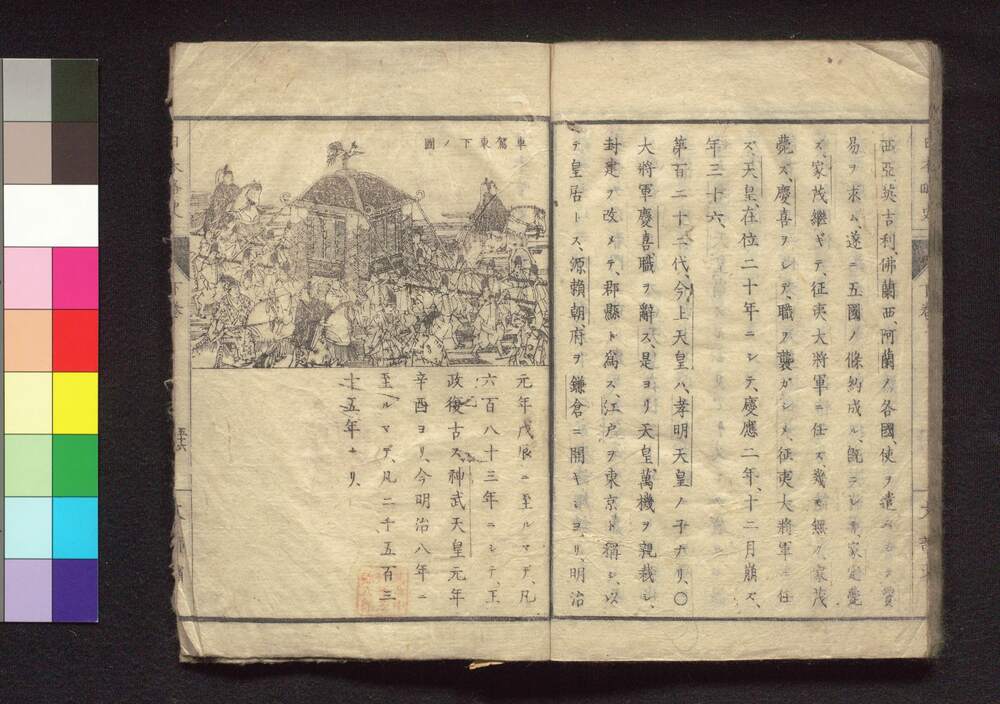 西亞、英吉利、佛蘭西、阿蘭ノ各國、使ヲ遣ハシテ貿
易ヲ求ム、遂ニ五國ノ條約成ル、既ニシテ、家定薨
ズ、家茂繼ギテ、征夷大將軍ニ任ズ、幾モ無ク、家茂
薨ズ、慶喜ヲシテ、職ヲ襲ガシメ、征夷大將軍ニ任
ズ、天皇、在位二十年ニシテ、慶應二年、十二月崩ズ、
年三十六、
第百二十二代、今上天皇ハ、孝明天皇ノ子ナリ、〇
大將軍慶喜職ヲ辭ス、是ヨリ天皇、萬機ヲ親裁シ、
封建ヲ改メテ、郡縣ト爲ス、江戸ヲ東京ト稱シ、以
テ皇居トス、源賴朝、府ヲ鎌倉ニ開キシヨリ、明治
車駕東下ノ圖
元年戊辰ニ至ルマデ、凡
六百八十三年ニシテ、王
政復古ス、神武天皇元年
辛酉ヨリ、今明治八年ニ
至ルマデ、凡二千五百三
十五年ナリ、
五十六